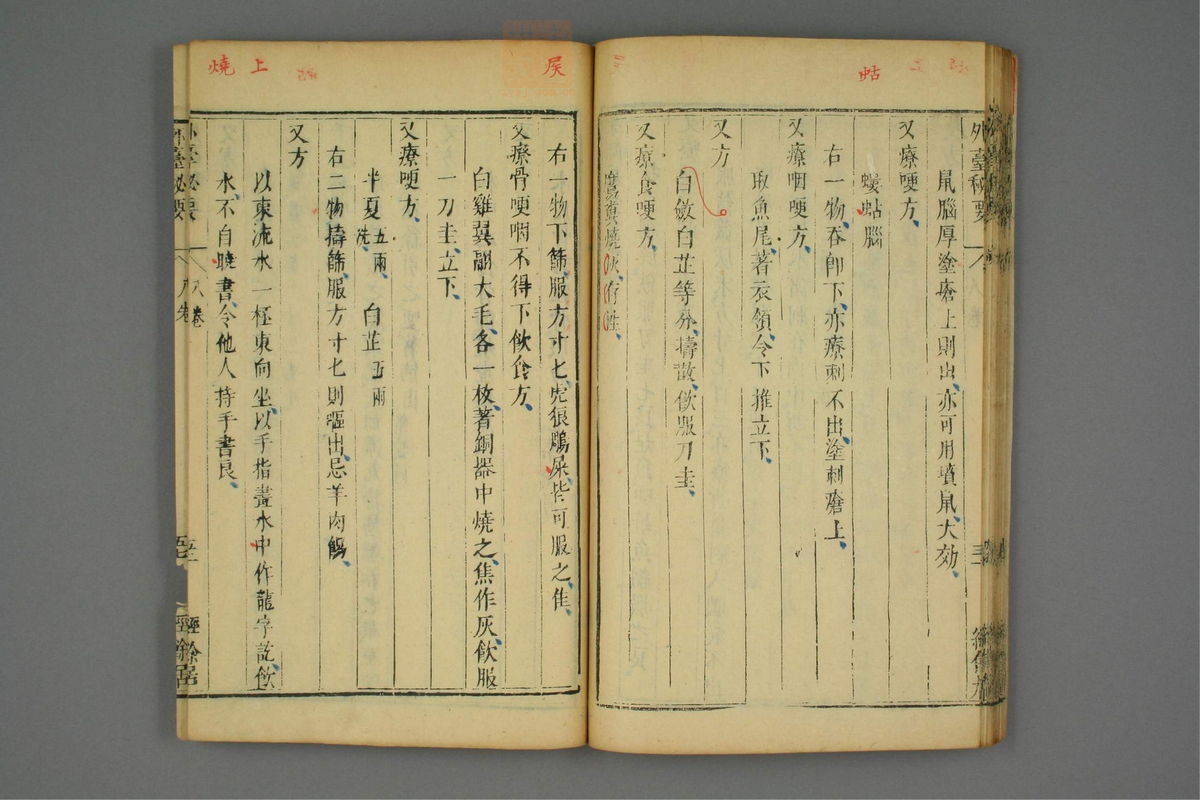 蛄
外臺秘要
鼠腦厚塗瘡上則出亦可用墳鼠大効
又療哽方
螻蛄腦
右一物吞即下亦療刺不出塗刺瘡上
又療咽哽方
取魚尾著衣領令下推立下
又方
白斂白芷等分擣散飲服刀圭
又療食哽方
鷹糞燒灰存性
尿
上
燒
右一物下篩服方寸七虎狼鵰屎皆可服之佳
又療骨哽咽不得下飲食方
白雞翼翮大毛各一枚著銅器中燒之焦作灰飲服
一刀圭立下
又療哽方
半夏五兩洗 白芷五兩
右二物擣篩服方寸七則嘔出忌羊肉餳
又方
以東流水一杯東向坐以手指畫水中作龍字訖飲
水不自曉書令他人持手書良
外臺秘要
八卷
經餘居